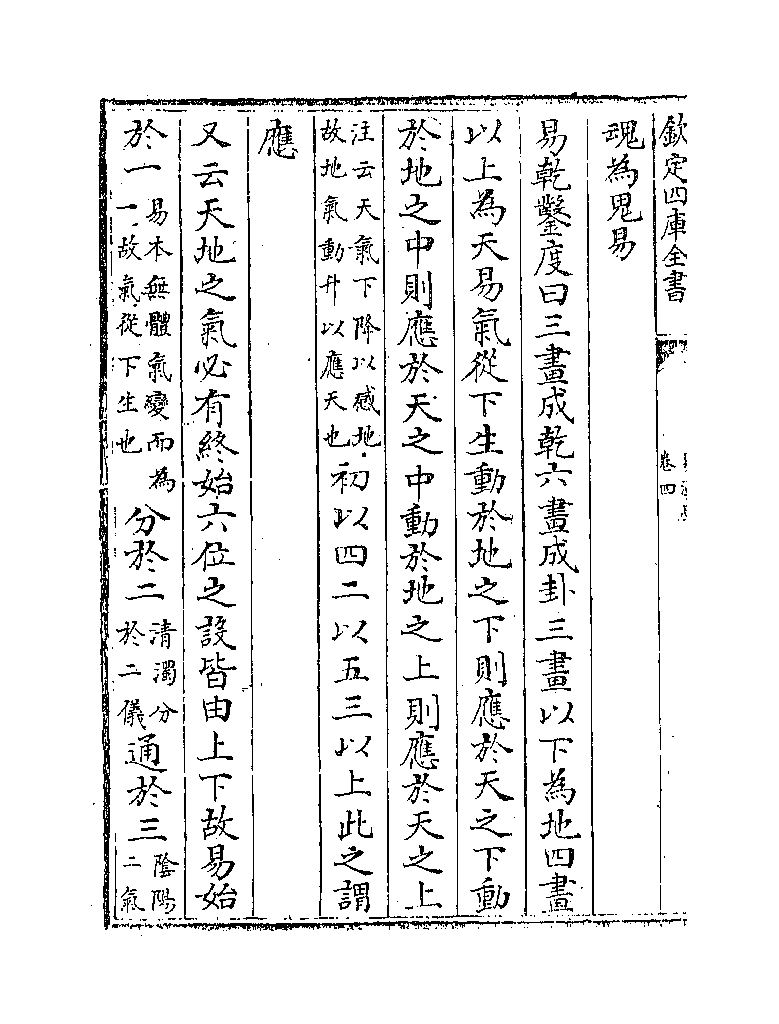 欽定四庫全書
卷四
魂為鬼易
易乾鑿度曰三畫成乾六畫成卦三畫以下為地四畫
以上為天易氣從下生動於地之下則應於天之下動
於地之中則應於天之中動於地之上則應於天之上
注云天氣下降以感地
故地氣動升以應天也
初以四二以五三以上此之謂
應
又云天地之氣必有終始六位之設皆由上下故易始
於一
易本無體氣變而為
一故氣從下生也
分於二
清濁分
於二儀
通於三
陰陽
二氣